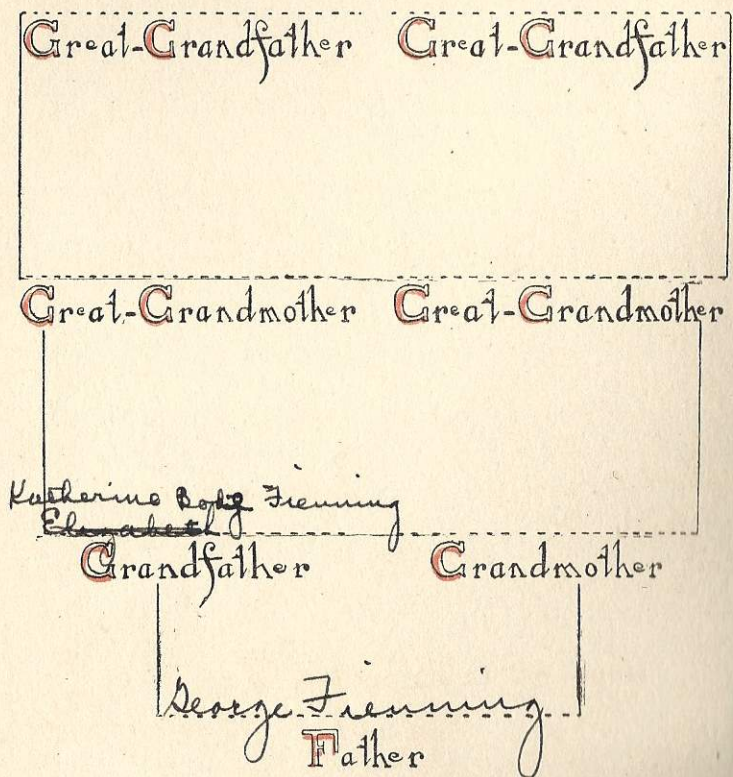 Great-Grandfather Great-Grandfather
Great-Grandmother Great-Grandmother
Katherine Fienning
Elizabeth
Grandfather Grandmother
George Fienning
Father